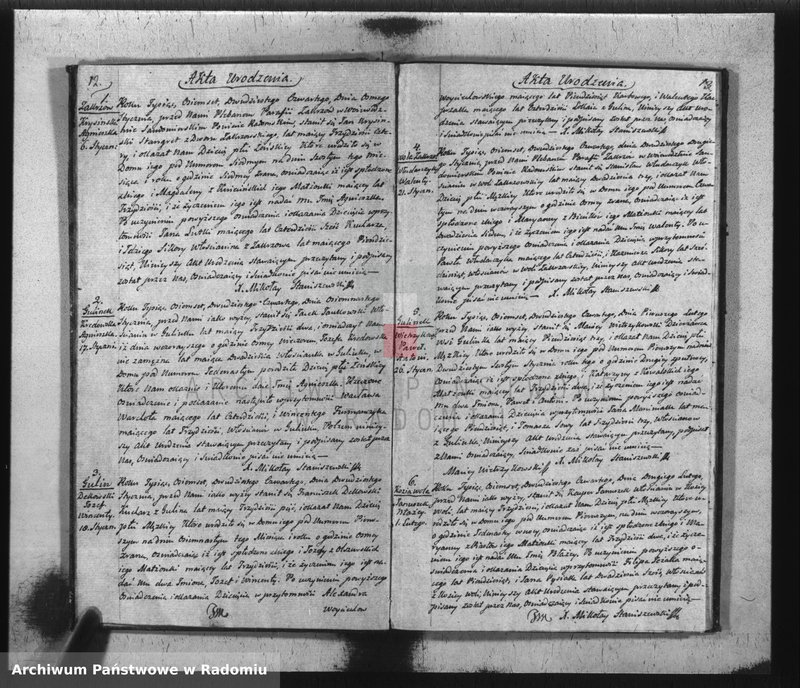 12.
Akta Urodzenia.
1.
Zakrzow
Krysińska
Agnieszka
6. Styczni.
Roku Tysiąc, Ośmset, Dwudziestego Czwartego, Dnia Osmego
Stycznia, przed Nami Plebanem Parafii Zakrzow w Wojewodz-
twie Sandomirskim Powiecie Radomskim, stawił się Jan Krysin-
ski Stangret z Dworu Zakrzowskiego, lat maiący Trzydzieści Czte-
ry, i okazał Nam Dziecię płci Żeńskiej które urodziło się w
Domu iego pod Numerem Siodmym na dniu Szostym tego Mie-
siąca i roku o godzinie Siodmej zrana, oświadczaiąc iż iest spłodzone
z niego i Magdaleny z iego Małżonki maiącej lat
Trzydzieści, i że życzeniem iego iest nadać mu Imię Agnieszka.
Po uczynieniu powyższego oświadczenia i okazania Dziecięcia w przy-
tomności Jana lat Czterdzieści Sześć Kucharza,
i Idziego Sikory Włościanina z Zakrzowa lat maiącego Piędzie-
siąt, Niniejszy Akt Urodzenia Stawaiącym przeczytany i podpisany
został przez Nas, Oświadczaiący i Świadkowie pisać nie umieią —
X. Mikołay Staniszewski
2.
Gulinek
Kozłowska
Agnieszka
17. Styczni
Roku Tysiąc, Ośmset, Dwudziestego Czwartego, Dnia Osiemnastego
Stycznia, przed Nami iako wyżej, stawił się Jacek Wło-
ścianin w Gulinku lat maiący Trzydzieści dwa, i oświadczył Nam
iż dnia wczorayszego o godzinie osmej wieczorem, Jozefa Kozłowska
nie zamężna lat maiąca Dwadzieścia w Gulinku, w
Domu pod Numerem Jedenastym porodziła Dziecię płci Żeńskiej
Które Nam okazał i Któremu daie Imię Agnieszka. Uczciwo
Oświadczenie i pokazanie nastąpiło w przytomności Wacława
Wardota maiącego lat Czterdzieści, i Wincentego Furmańczyka
maiącego lat Trzydzieści, Włościan w Gulinku. Poczem niniey-
szy Akt Urodzenia Stawaiącym przeczytany i podpisany został przez
Nas, Oświadczaiący i Świadkowie pisać nie umieią —
X. Mikołay Staniszewski
3.
Gulin
Dekowski
Jozef
Wincenty.
18. Styczn.
Roku Tysiąc, Ośmset, Dwudziestego Czwartego, Dnia Dwudziestego
Stycznia, przed Nami iako wyżej stawił się Franciszek Dekowski
Kucharz z Gulina lat maiący Trzydzieści pięć, i okazał Nam Dziecię
płci Męzkiej Które urodziło się w Domu iego pod Numerem Pierw-
szym na dniu Osmnastym tego Miesiąca i roku o godzinie Osmej
zrana, oświadczaiąc iż iest spłodzone z niego i Jozefy z
iego Małżonki maiącej lat Trzydzieści, i że życzeniem iego iest na-
dać Mu dwa Imiona, Jozef i Wincenty. Po uczynieniu powyższego
Oświadczenia i okazania Dziecięcia w przytomności Alexandra
Woyciechow
13.
Akta Urodzenia.
Woyciechowskiego maiącego lat Piędziesiąt Karbowego, i Walentego
maiącego lat Czterdzieści z Gulina, Niniejszy Akt Uro-
dzenia Stawaiącym przeczytany i podpisany został przez Nas, Oświadczaiący
i Świadkowie pisać nie umieią — X. Mikołay Staniszewski
4.
Wola Zakrzow
Włodarczyk
Walenty.
21. Styczn.
Roku Tysiąc, Ośmset, Dwudziestego Czwartego, dnia Dwudziestego Drugie-
go Stycznia, przed Nami Plebanem Parafii Zakrzow w Wojewodztwie San-
domirskim Powiecie Radomskim stawił się Stanisław Włodarczyk Wło-
ścianin w woli Zakrzowskiej lat maiący Dwadzieścia trzy, i okazał Nam
Dziecię płci Męzkiej Które urodziło się w Domu iego pod Numerem Czwar-
tym na dniu wczorayszym o godzinie osmej zrana, oświadczaiąc iż iest
spłodzone z niego i Maryanny z iego Małżonki maiącej lat
Dwadzieścia Siedm, i że życzeniem iego iest nadać Mu Imię Walenty. Po u-
czynieniu powyższego Oświadczenia i okazania Dziecięcia w przytomności
Pawła Włodarczyka maiącego lat Czterdzieści, i Kazimierza Sikory lat Sześć-
dziesiąt, Włościan w woli Zakrzowskiej, Niniejszy Akt Urodzenia Sta-
waiącym przeczytany i podpisany został przez Nas, Oświadczaiący i Świad-
kowie pisać nie umieią — X. Mikołay Staniszewski
5.
Gulinek
Wietrzykowski
Paweł
Antoni.
26. Styczn.
Roku Tysiąc, Ośmset, Dwudziestego Czwartego, Dnia Pierwszego Lutego
przed Nami iako wyżej, stawił się Maciej Wietrzykowski Dzierżawca
Wsi Gulinka lat maiący Piędziesiąt trzy, i okazał Nam Dziecię płci
Męzkiej Które urodziło się w Domu iego pod Numerem Pierwszym na dniu
Dwudziestym Szostym Stycznia roku tego o godzinie Drugiej z południa,
Oświadczaiąc iż iest spłodzone z niego i Katarzyny z Kowalskich iego
Małżonki maiącej lat Trzydzieści dwa, i że życzeniem iego iest nadać
mu dwa Imiona, Paweł i Antoni. Po uczynieniu powyższego Oświad-
czenia i okazania Dziecięcia w przytomności Jana lat ma-
iącego Piędziesiąt, i Tomasza Sowy lat Trzydzieści trzy, Włościanow
z Gulinka, Niniejszy Akt Urodzenia Stawaiącym przeczytany, podpisał
z Nami Oświadczaiący, Świadkowie zaś pisać nie umieią —
Maciej Wietrzykowski X. Mikołay Staniszewski
6.
Kozia Wola
Janowczak
Błażey
1. Lutego.
Roku Tysiąc, Ośmset, Dwudziestego Czwartego, Dnia Drugiego Lutego,
przed Nami iako wyżej, stawił się Kasper Włościanin w Koziej
woli, lat maiący Trzydzieści, i okazał Nam Dziecię płci Męzkiej Które u-
rodziło się w Domu iego pod Numerem Pierwszym, na dniu wczorayszym,
o godzinie Jedenastej w nocy, oświadczaiąc iż iest spłodzone z niego i Ma-
ryanny iego Małżonki maiącej lat Trzydzieści dwa, i że życze-
niem iego iest nadać Mu Imię Błażey. Po uczynieniu powyższego o-
świadczenia i okazania Dziecięcia w przytomności Filipa maią-
cego lat Piędziesiąt, i Jana lat Dwadzieścia Sześć, Włościan
z Koziej woli, Niniejszy Akt Urodzenia Stawaiącym przeczytany i pod-
pisany został przez Nas, Oświadczaiący i Świadkowie pisać nie umieią —
X. Mikołay Staniszewski
Archiwum Państwowe w Radomiu